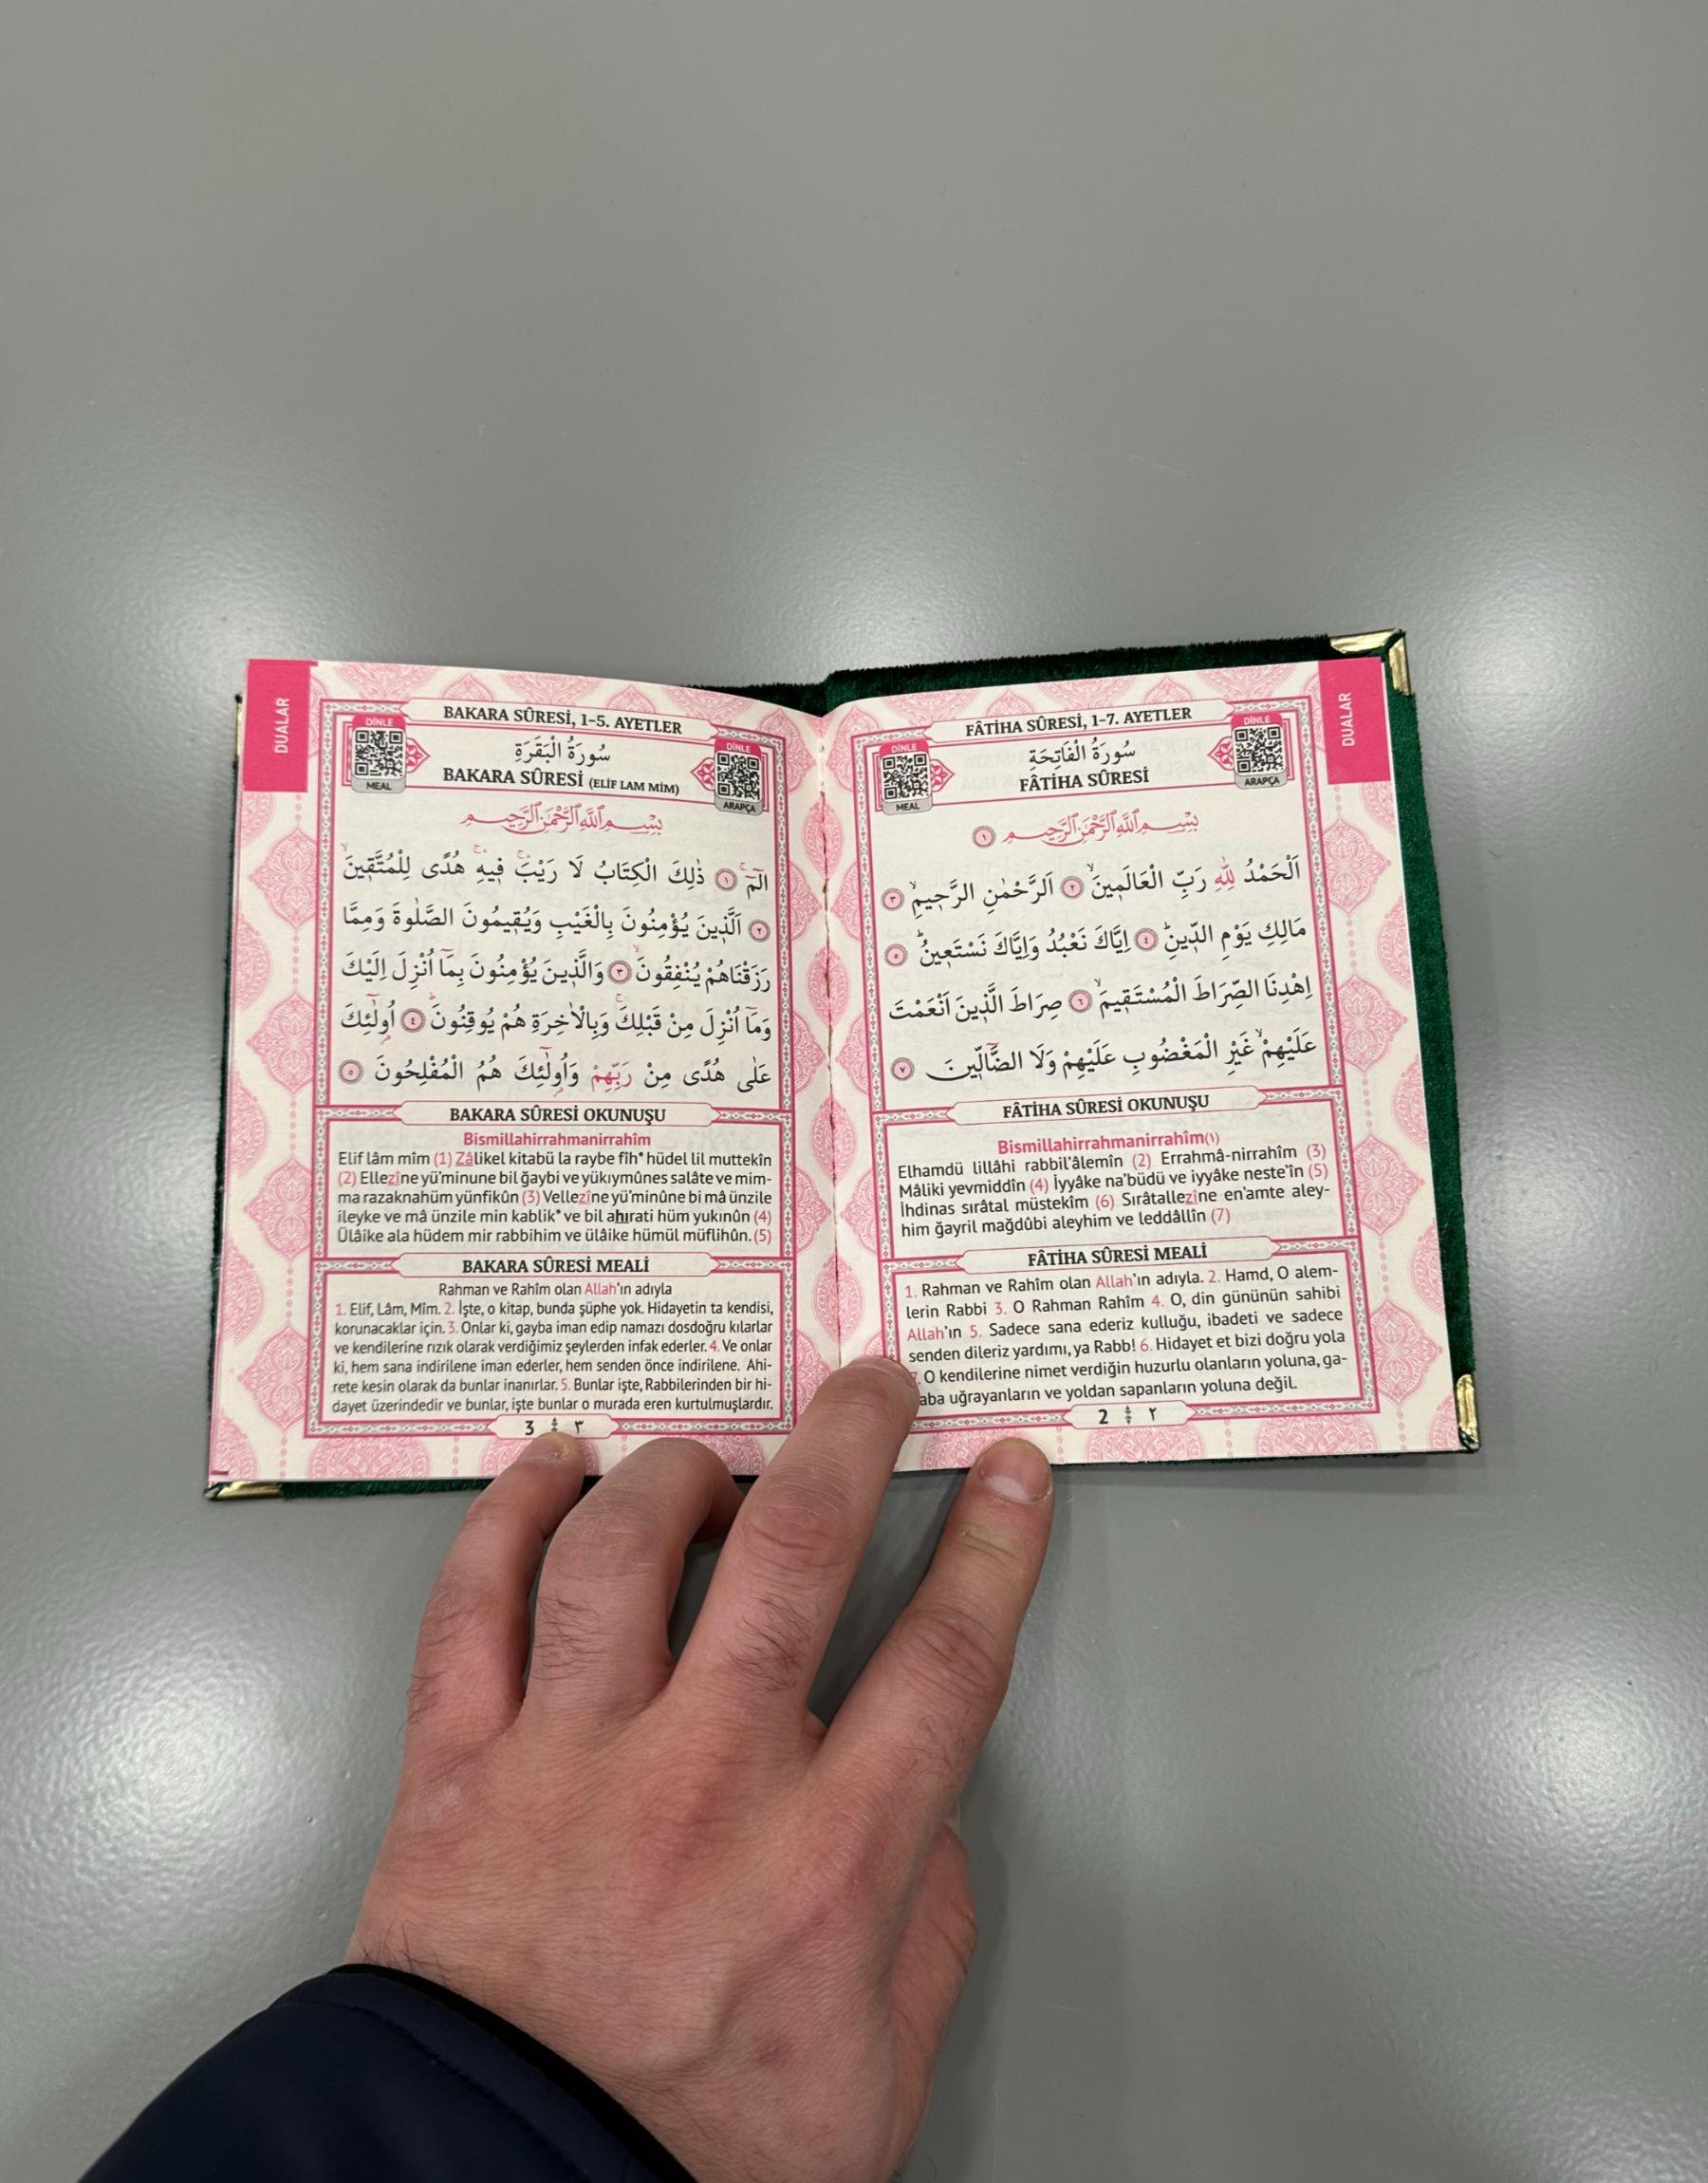 DUALAR
FÂTİHA SÛRESİ, 1-7. AYETLER
DİNLE
MEAL
سُورَةُ الْفَاتِحَةِ
FÂTİHA SÛRESİ
DİNLE
ARAPÇA
بِسْمِ اللّٰهِ الرَّحْمٰنِ الرَّحِيمِ ١
اَلْحَمْدُ لِلّٰهِ رَبِّ الْعَالَمِينَۙ ٢ اَلرَّحْمٰنِ الرَّحِيمِۙ ٣
مَالِكِ يَوْمِ الدِّينِۜ ٤ اِيَّاكَ نَعْبُدُ وَاِيَّاكَ نَسْتَعِينُۜ ٥
اِهْدِنَا الصِّرَاطَ الْمُسْتَقِيمَۙ ٦ صِرَاطَ الَّذِينَ اَنْعَمْتَ
عَلَيْهِمْۙ غَيْرِ الْمَغْضُوبِ عَلَيْهِمْ وَلَا الضَّٓالِّينَ ٧
FÂTİHA SÛRESİ OKUNUŞU
Bismillahirrahmanirrahîm(1)
Elhamdü lillâhi rabbil'âlemîn (2) Errahmâ-nirrahîm (3)
Mâliki yevmiddîn (4) İyyâke na'büdü ve iyyâke neste'în (5)
İhdinas sırâtal müstekîm (6) Sırâtallezîne en'amte aley-
him ğayril mağdûbi aleyhim ve leddâllîn (7)
FÂTİHA SÛRESİ MEALİ
1. Rahman ve Rahîm olan Allah'ın adıyla. 2. Hamd, O alem-
lerin Rabbi 3. O Rahman Rahîm 4. O, din gününün sahibi
Allah'ın 5. Sadece sana ederiz kulluğu, ibadeti ve sadece
senden dileriz yardımı, ya Rabb! 6. Hidayet et bizi doğru yola
7. O kendilerine nimet verdiğin huzurlu olanların yoluna, ga-
aba uğrayanların ve yoldan sapanların yoluna değil.
2 ٢
DUALAR
BAKARA SÛRESİ, 1-5. AYETLER
DİNLE
MEAL
سُورَةُ الْبَقَرَةِ
BAKARA SÛRESİ (ELİF LAM MİM)
DİNLE
ARAPÇA
بِسْمِ اللّٰهِ الرَّحْمٰنِ الرَّحِيمِ
الٓمٓۚ ١ ذٰلِكَ الْكِتَابُ لَا رَيْبَۚ فِيهِۚ هُدًى لِلْمُتَّقِينَۙ
٢ اَلَّذِينَ يُؤْمِنُونَ بِالْغَيْبِ وَيُقِيمُونَ الصَّلٰوةَ وَمِمَّا
رَزَقْنَاهُمْ يُنْفِقُونَۙ ٣ وَالَّذِينَ يُؤْمِنُونَ بِمَٓا اُنْزِلَ اِلَيْكَ
وَمَٓا اُنْزِلَ مِنْ قَبْلِكَۚ وَبِالْاٰخِرَةِ هُمْ يُوقِنُونَۜ ٤ اُو۬لٰٓئِكَ
عَلٰى هُدًى مِنْ رَبِّهِمْ وَاُو۬لٰٓئِكَ هُمُ الْمُفْلِحُونَ ٥
BAKARA SÛRESİ OKUNUŞU
Bismillahirrahmanirrahîm
Elif lâm mîm (1) Zâlikel kitabü la raybe fîh* hüdel lil muttekîn
(2) Ellezîne yü'minune bil ğaybi ve yükıymûnes salâte ve mim-
ma razaknahüm yünfikûn (3) Vellezîne yü'minûne bi mâ ünzile
ileyke ve mâ ünzile min kablik* ve bil ahırati hüm yukınûn (4)
Ülâike ala hüdem mir rabbihim ve ülâike hümül müflihûn. (5)
BAKARA SÛRESİ MEALİ
Rahman ve Rahîm olan Allah'ın adıyla
1. Elif, Lâm, Mîm. 2. İşte, o kitap, bunda şüphe yok. Hidayetin ta kendisi,
korunacaklar için. 3. Onlar ki, gayba iman edip namazı dosdoğru kılarlar
ve kendilerine rızık olarak verdiğimiz şeylerden infak ederler. 4. Ve onlar
ki, hem sana indirilene iman ederler, hem senden önce indirilene. Ahi-
rete kesin olarak da bunlar inanırlar. 5. Bunlar işte, Rabbilerinden bir hi-
dayet üzerindedir ve bunlar, işte bunlar o murada eren kurtulmuşlardır.
3 ٣